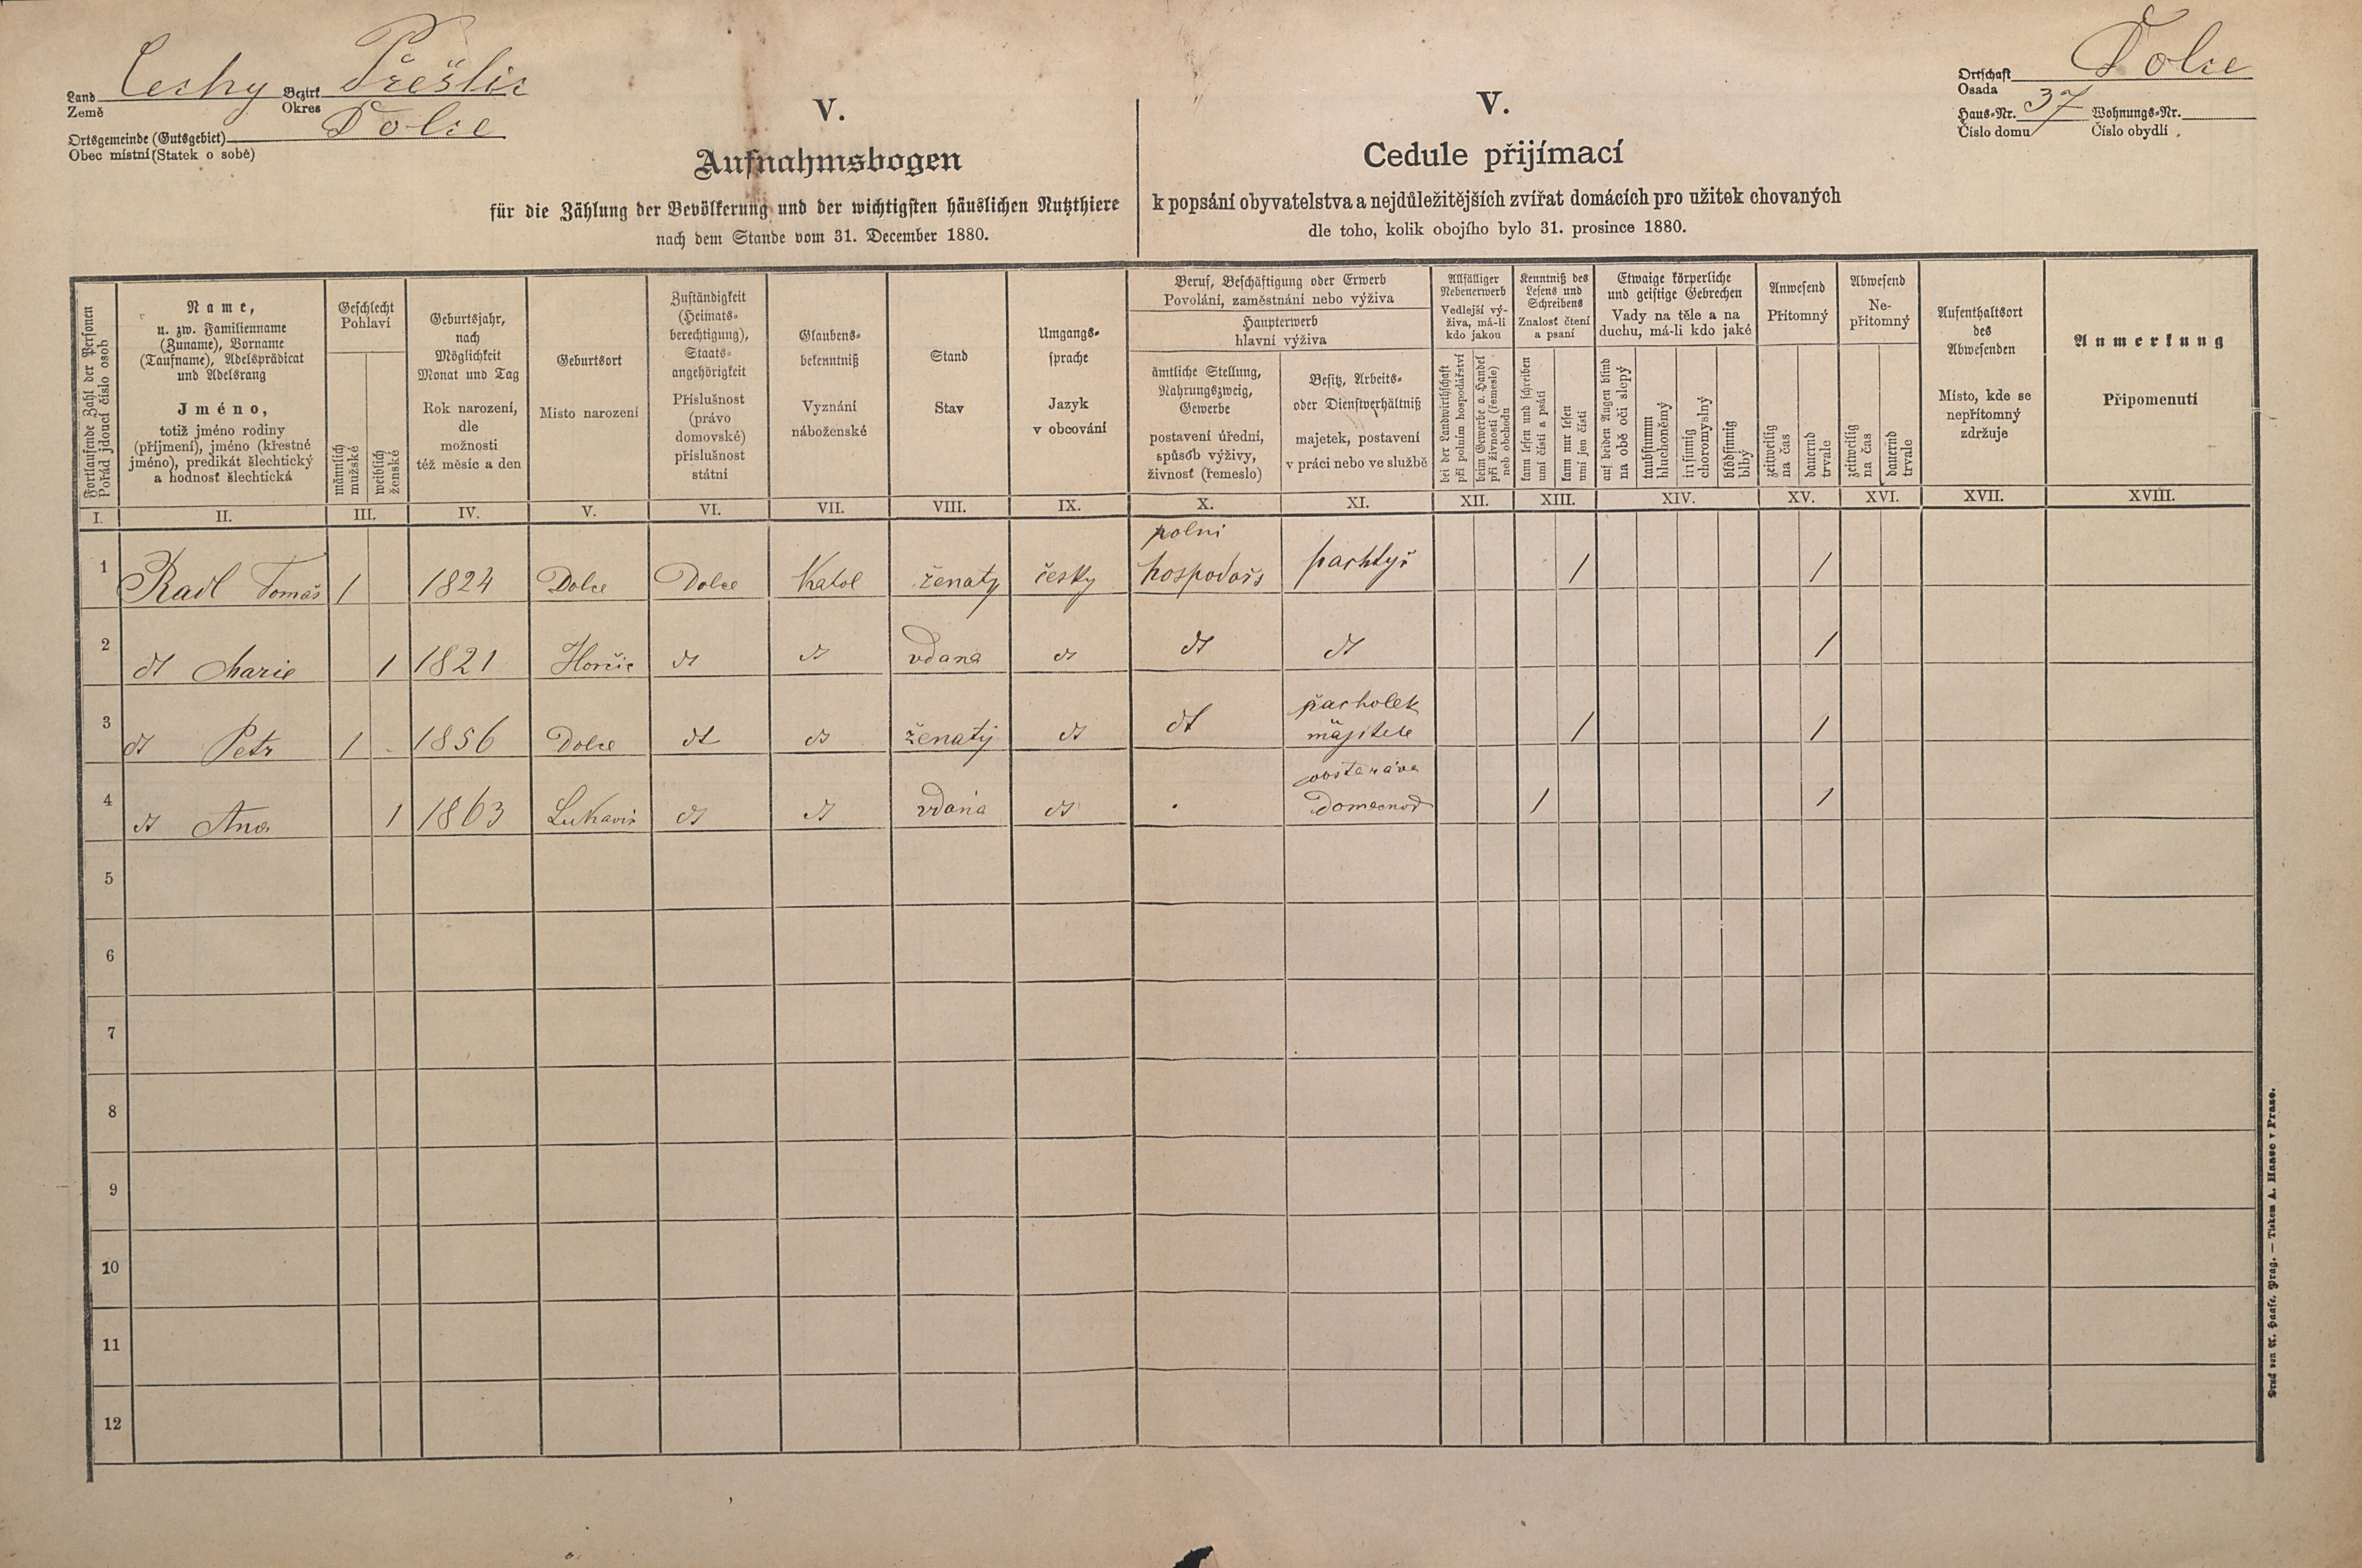 Land Čechy Bezirk Přeštic
Země Okres
Ortsgemeinde (Gutsgebiet) Dolce
Obec místní (Statek o sobě)
Ortschaft Dolce
Osada
Haus-Nr. 37 Wohnungs-Nr.
Číslo domu Číslo obydlí
V.
Aufnahmsbogen
für die Zählung der Bevölkerung und der wichtigsten häuslichen Nutzthiere
nach dem Stande vom 31. December 1880.
V.
Cedule přijímací
k popsání obyvatelstva a nejdůležitějších zvířat domácích pro užitek chovaných
dle toho, kolik obojího bylo 31. prosince 1880.
Fortlaufende Zahl der Personen
Pořád jdoucí číslo osob
Name,
u. zw. Familienname
(Zuname), Vorname
(Taufname), Adelsprädicat
und Adelsrang
Jméno,
totiž jméno rodiny
(příjmení), jméno (křestné
jméno), predikát šlechtický
a hodnosť šlechtická
Geschlecht
Pohlaví
männlich
mužské
weiblich
ženské
Geburtsjahr,
nach
Möglichkeit
Monat und Tag
Rok narození,
dle
možnosti
též měsíc a den
Geburtsort
Místo narození
Zuständigkeit
(Heimats-
berechtigung),
Staats-
angehörigkeit
Příslušnost
(právo
domovské)
příslušnost
státní
Glaubens-
bekenntniß
Vyznání
náboženské
Stand
Stav
Umgangs-
sprache
Jazyk
v obcování
Beruf, Beschäftigung oder Erwerb
Povolání, zaměstnání nebo výživa
Haupterwerb
hlavní výživa
ämtliche Stellung,
Nahrungszweig,
Gewerbe
postavení úřední,
spůsob výživy,
živnosť (řemeslo)
Besitz, Arbeits-
oder Dienstverhältniß
majetek, postavení
v práci nebo ve službě
Allfälliger
Nebenerwerb
Vedlejší vý-
živa, má-li
kdo jakou
bei der Landwirthschaft
při polním hospodářství
beim Gewerbe o. Handel
při živnosti (řemesle)
neb obchodu
Kenntniß des
Lesens und
Schreibens
Znalosť čtení
a psaní
kann lesen und schreiben
umí čísti a psáti
kann nur lesen
umí jen čísti
Etwaige körperliche
und geistige Gebrechen
Vady na těle a na
duchu, má-li kdo jaké
auf beiden Augen blind
na obě oči slepý
taubstumm
hluchoněmý
irrsinnig
choromyslný
blödsinnig
blbý
Anwesend
Přítomný
zeitweilig
na čas
dauernd
trvale
Abwesend
Ne-
přítomný
zeitweilig
na čas
dauernd
trvale
Aufenthaltsort
des
Abwesenden
Místo, kde se
nepřítomný
zdržuje
Anmerkung
Připomenutí
I. II. III. IV. V. VI. VII. VIII. IX. X. XI. XII. XIII. XIV. XV. XVI. XVII. XVIII.
polni
1 Radl Tomáš 1 1824 Dolce Dolce Katol ženatý česky hospodař pachtýř / /
2 dt Marie 1 1821 Horčic dt dt vdana dt dt dt /
pacholek
3 dt Petr 1 1856 Dolce dt dt ženatý dt dt majitele / /
4 dt Ana 1 1863 Lukavis dt dt vdaná dt / /
5
6
7
8
9
10
11
12
Druck von A. Haase, Prag. — Tiskem A. Haase v Praze.